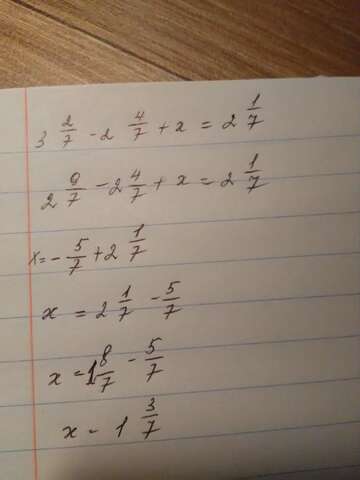 3 2/7 - 2 4/7 + x = 2 1/7
2 9/7 - 2 4/7 + x = 2 1/7
x = - 5/7 + 2 1/7
x = 2 1/7 - 5/7
x = 1 8/7 - 5/7
x - 1 3/7